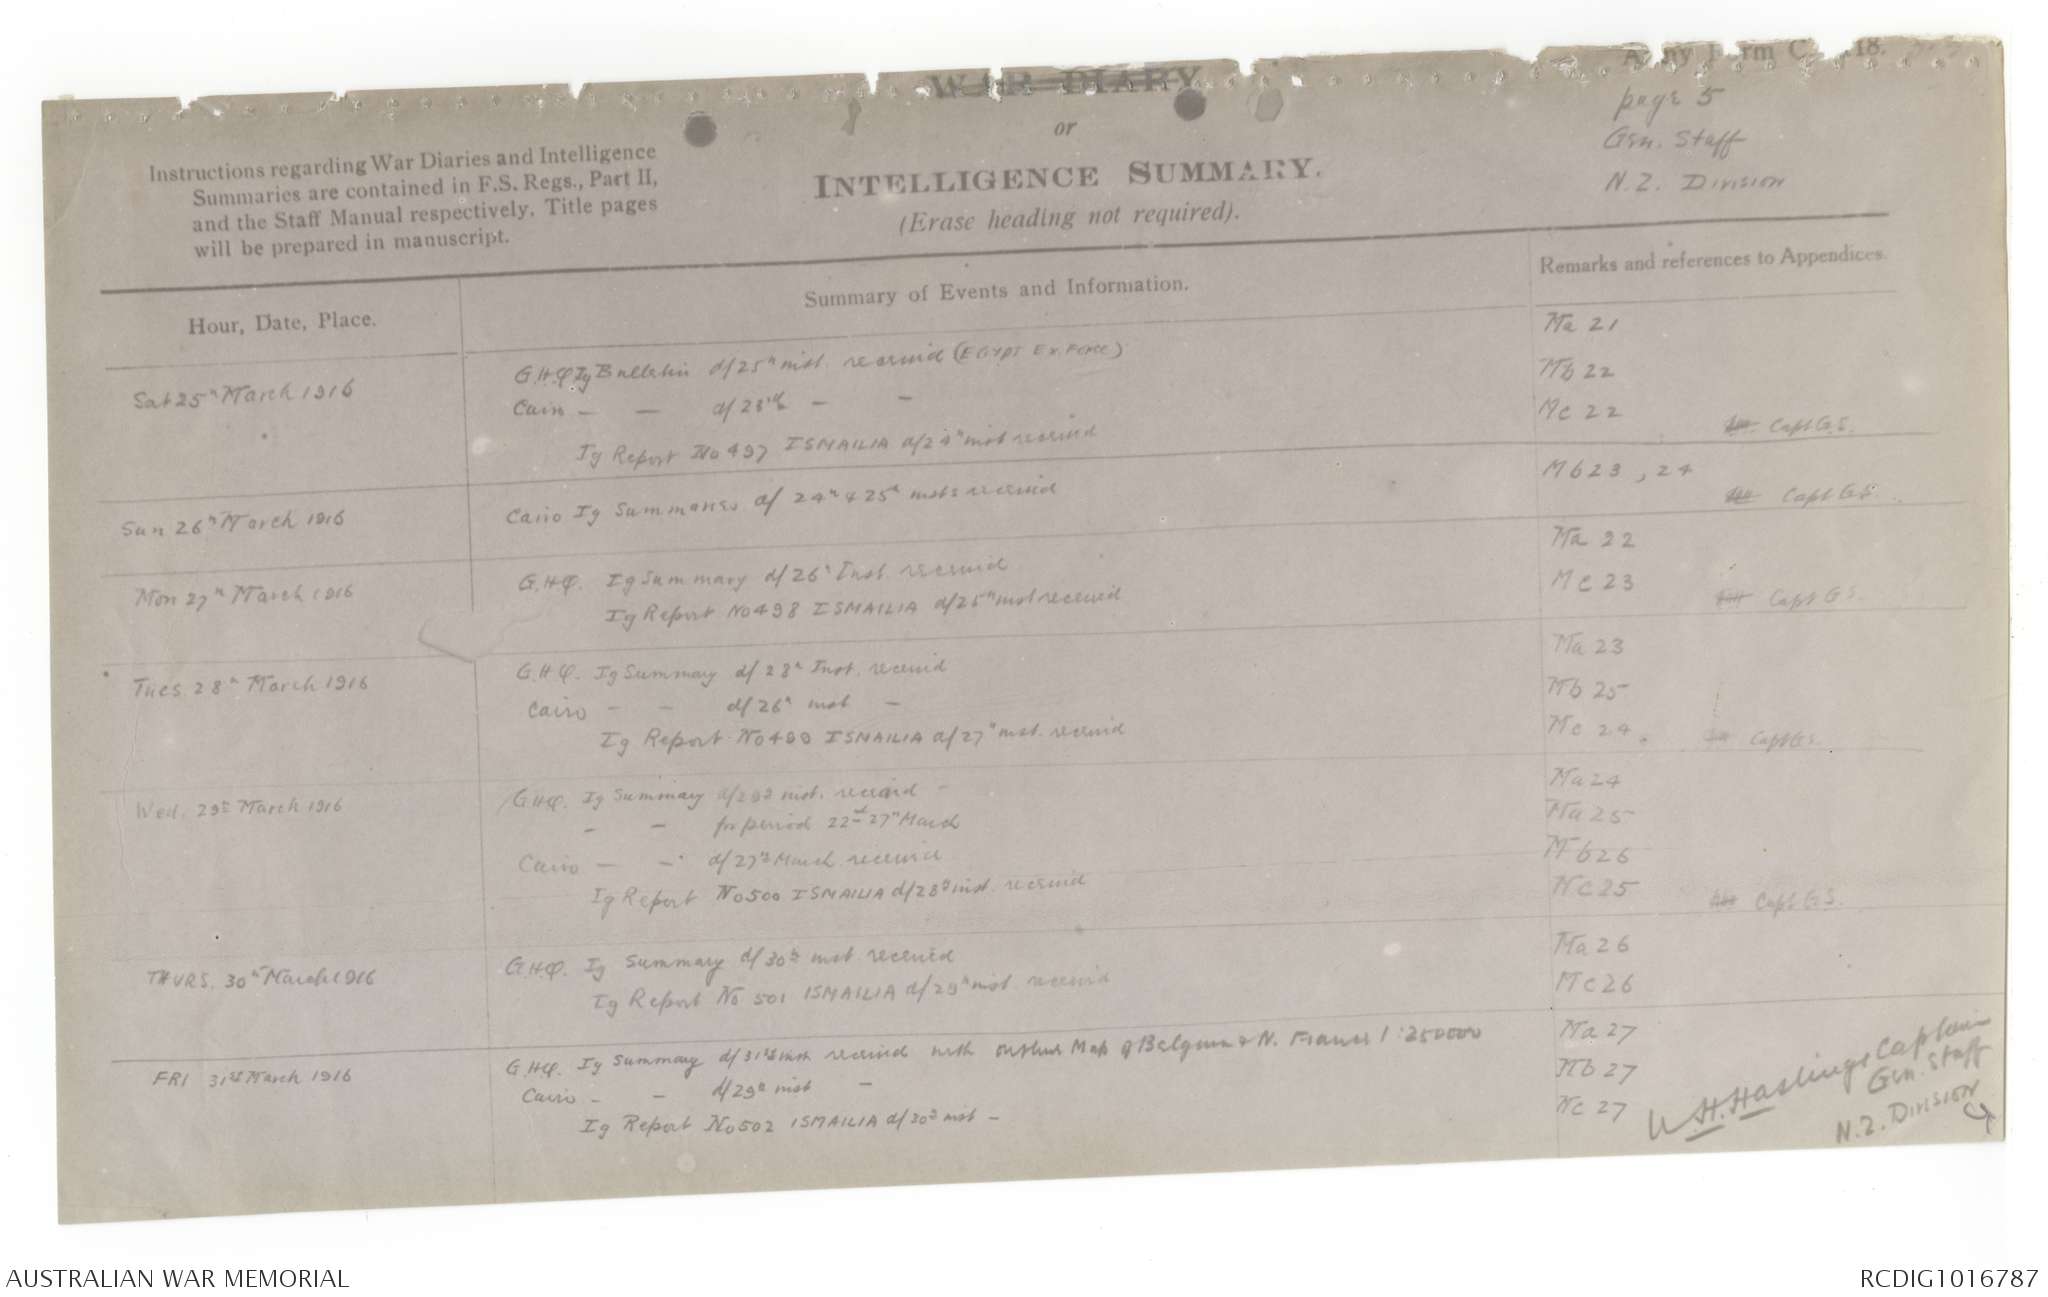 Army Form C. 2118.
WAR DIARY
or
INTELLIGENCE SUMMARY.
(Erase heading not required).
page 5
Gen. Staff
N.Z. Division
Instructions regarding War Diaries and Intelligence
Summaries are contained in F.S. Regs., Part II,
and the Staff Manual respectively. Title pages
will be prepared in manuscript.
Hour, Date, Place.
Summary of Events and Information.
Remarks and references to Appendices.
Sat 25th March 1916
G.H.Q Ig Bulletin d/25th inst. received (EGYPT Ex. Force)
Ma 21
Cairo — — d/23rd — —
Mb 22
Ig Report No 497 ISMAILIA d/24th inst received
Mc 22
Capt G.S.
Sun 26th March 1916
Cairo Ig Summaries d/ 24th & 25th insts received
Mb 23, 24
Capt G.S.
Mon 27th March 1916
G.H.Q. Ig Summary d/26th Inst. received
Ma 22
Ig Report No 498 ISMAILIA d/25th inst received
Mc 23
Capt G.S.
Tues 28th March 1916
G.H.Q. Ig Summary d/28th Inst. received
Ma 23
Cairo — — d/26th inst —
Mb 25
Ig Report No 499 ISMAILIA d/27th inst. received
Mc 24.
Capt G.S.
Wed. 29th March 1916
G.H.Q. Ig Summary d/29th inst. received —
Ma 24
— — for period 22nd-27th March
Ma 25
Cairo — — d/27th March received
Mb 26
Ig Report No 500 ISMAILIA d/28th inst. received
Mc 25
Capt G.S.
THURS. 30th March 1916
G.H.Q. Ig Summary d/30th inst received
Ma 26
Ig Report No 501 ISMAILIA d/29th inst. received
Mc 26
FRI 31st March 1916
G.H.Q. Ig Summary d/31st inst received with outline Map of Belgium & N. France 1:250000
Ma 27
Cairo — — d/29th inst —
Mb 27
Ig Report No 502 ISMAILIA d/30th inst —
Mc 27
H. Hastings Captain
Gen. Staff
N.Z. Division
AUSTRALIAN WAR MEMORIAL
RCDIG1016787